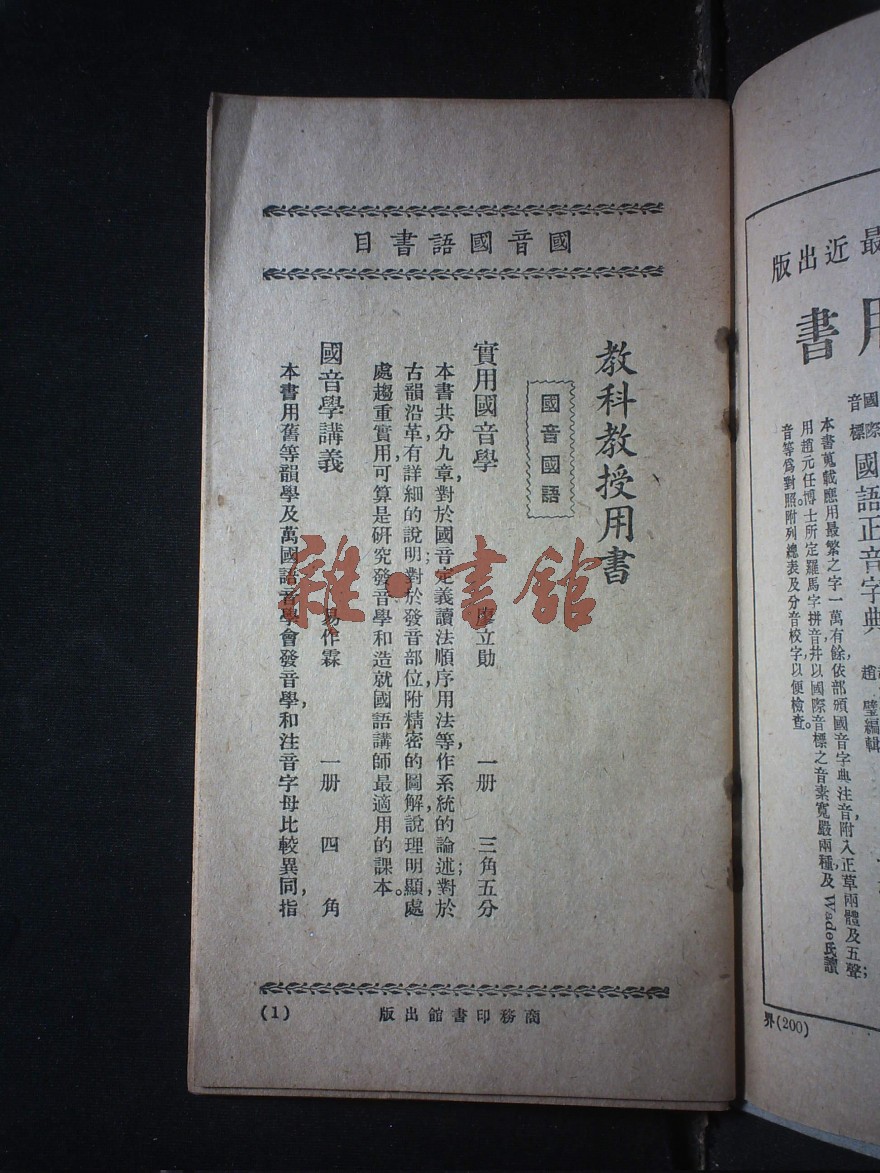 國音國語書目
教科教授用書
國音國語
實用國音學 廖立勛 一册 三角五分
本書共分九章,對於國音定義讀法順序用法等,作系統的論述;對於
古韻沿革,有詳細的說明;對於發音部位,附精密的圖解,說理明顯,處
處趨重實用,可算是研究發音學和造就國語講師最適用的課本。
國音學講義 易作霖 一册 四角
本書用舊等韻學及萬國語音學會發音學,和注音字母比較異同,指
商務印書館出版
(1)
雜·書館
最近出版
用書
國際音標國語正音字典
趙 璧編輯
本書蒐載應用最繁之字一萬有餘,依部頒國音字典注音,附入正草兩體及五聲;
用趙元任博士所定羅馬字拼音,并以國際音標之音素寬嚴兩種,及Wade氏讀
音等爲對照,附列總表及分音校字,以便檢查。
界(200)